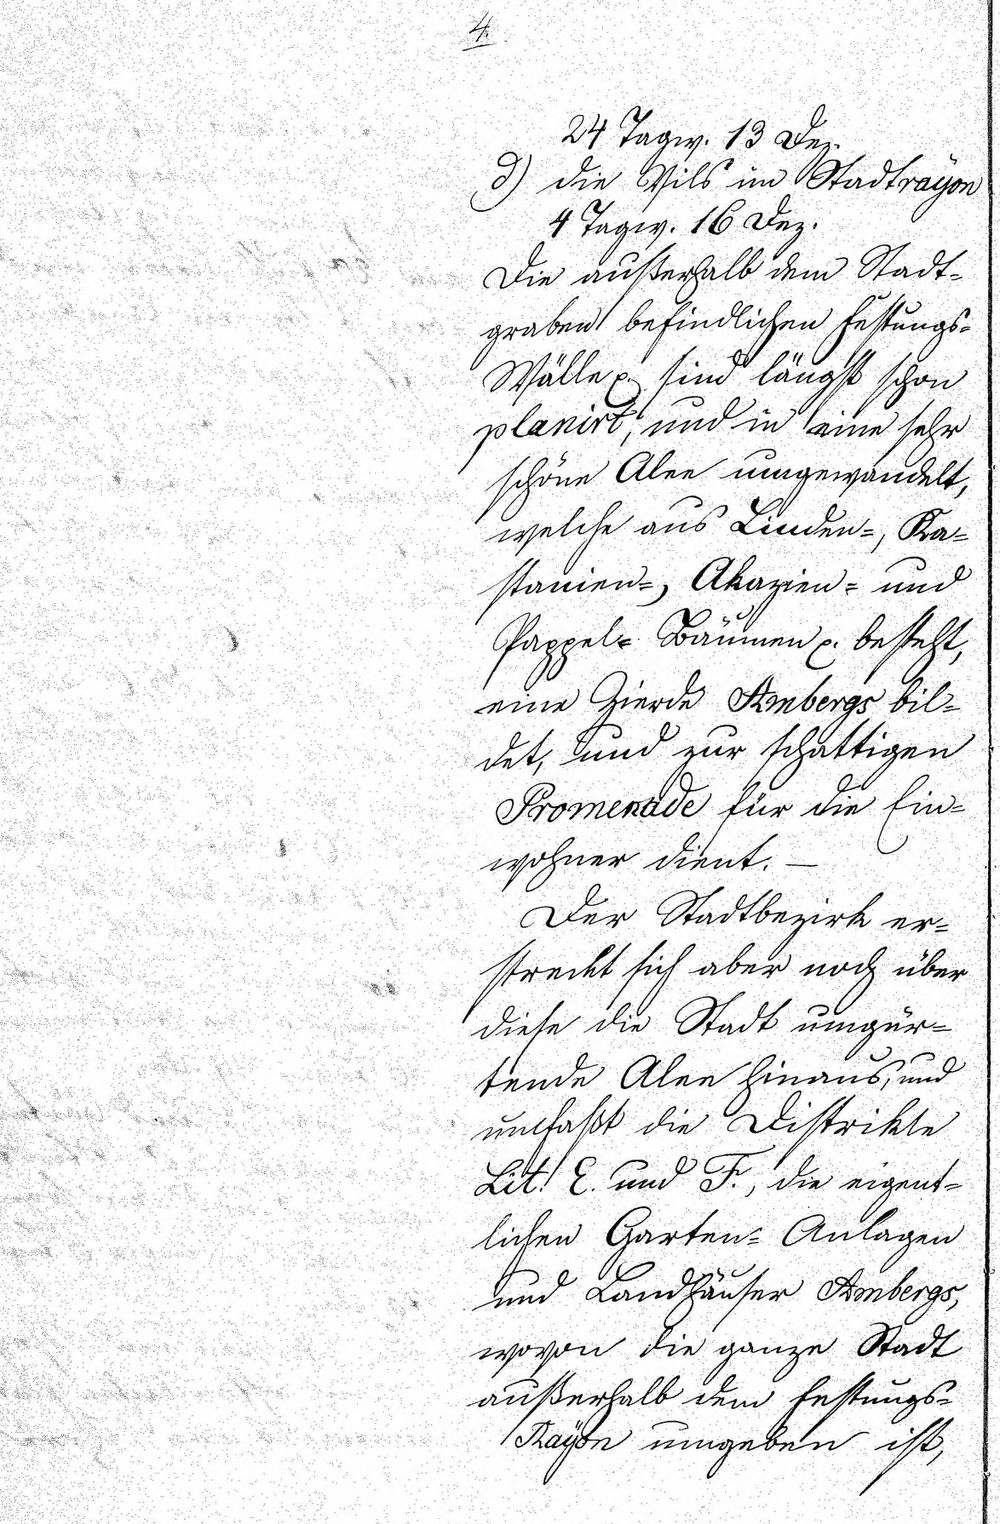 4.
24 Tagw. 13 Dez.
d) die Vils im Stadtrayon
4 Tagw. 16 Dez.
Die außerhalb dem Stadt-
graben befindlichen Festungs-
Wälle p. sind längst schon
planirt, und in eine sehr
schöne Alee umgewandelt,
welche aus Linden-, Ka-
stanien-, Akazien- und
Pappel- Bäumen p. besteht,
eine Zierde Ambergs bil-
det, und zur schattigen
Promenade für die Ein-
wohner dient. —
Der Stadtbezirk er-
streckt sich aber noch über
diese die Stadt umgür-
tende Alee hinaus, und
umfaßt die Distrikte
Lit. E. und F., die eigent-
lichen Garten- Anlagen
und Landhäuser Ambergs,
wovon die ganze Stadt
außerhalb dem Festungs-
Rayon umgeben ist,